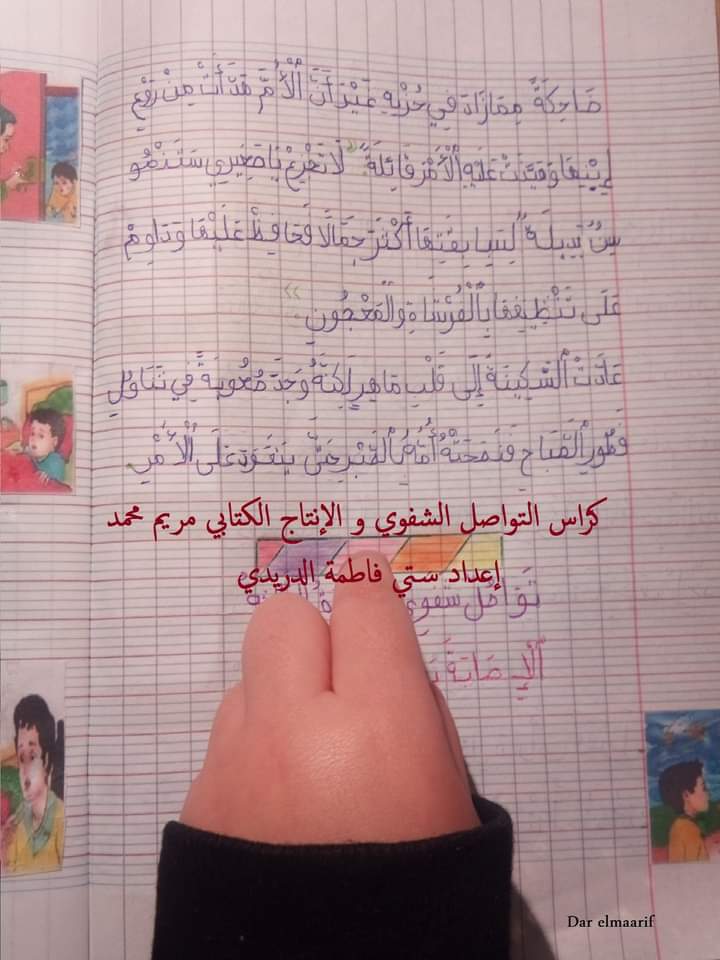 ضَاحِكَةً مِمَّا زَادَ فِي حُزْنِهِ غَيْرَ أَنَّ الْأُمَّ هَدَّأَتْ مِنْ رَوْعِ
إِبْنِهَا وَهَوَّنَتْ عَلَيْهِ الْأَمْرَ قَائِلَةً: « لَا تَجْزَعْ يَا صَغِيرِي سَتَنْمُو
سِنٌّ بَدِيلَةٌ لِسَابِقَتِهَا أَكْثَرَ جَمَالًا فَحَافِظْ عَلَيْهَا وَدَاوِمْ
عَلَى تَنْظِيفِهَا بِالْفُرْشَاةِ وَالْمَعْجُونِ. »
عَادَتْ السَّكِينَةُ إِلَى قَلْبِ مَاهِرٍ لَكِنَّهُ وَجَدَ صُعُوبَةً فِي تَنَاوُلِ
فَطُورِ الصَّبَاحِ فَنَصَحَتْهُ أُمُّهُ بِالصَّبْرِ حَتَّى يَتَعَوَّدَ عَلَى الْأَمْرِ.
كرّاس التواصل الشفوي و الإنتاج الكتابي مريم محمد
إعداد ستي فاطمة الدريدي
تَوَاصُل شَفَوِي
الْإِصَابَة
Dar elmaarif